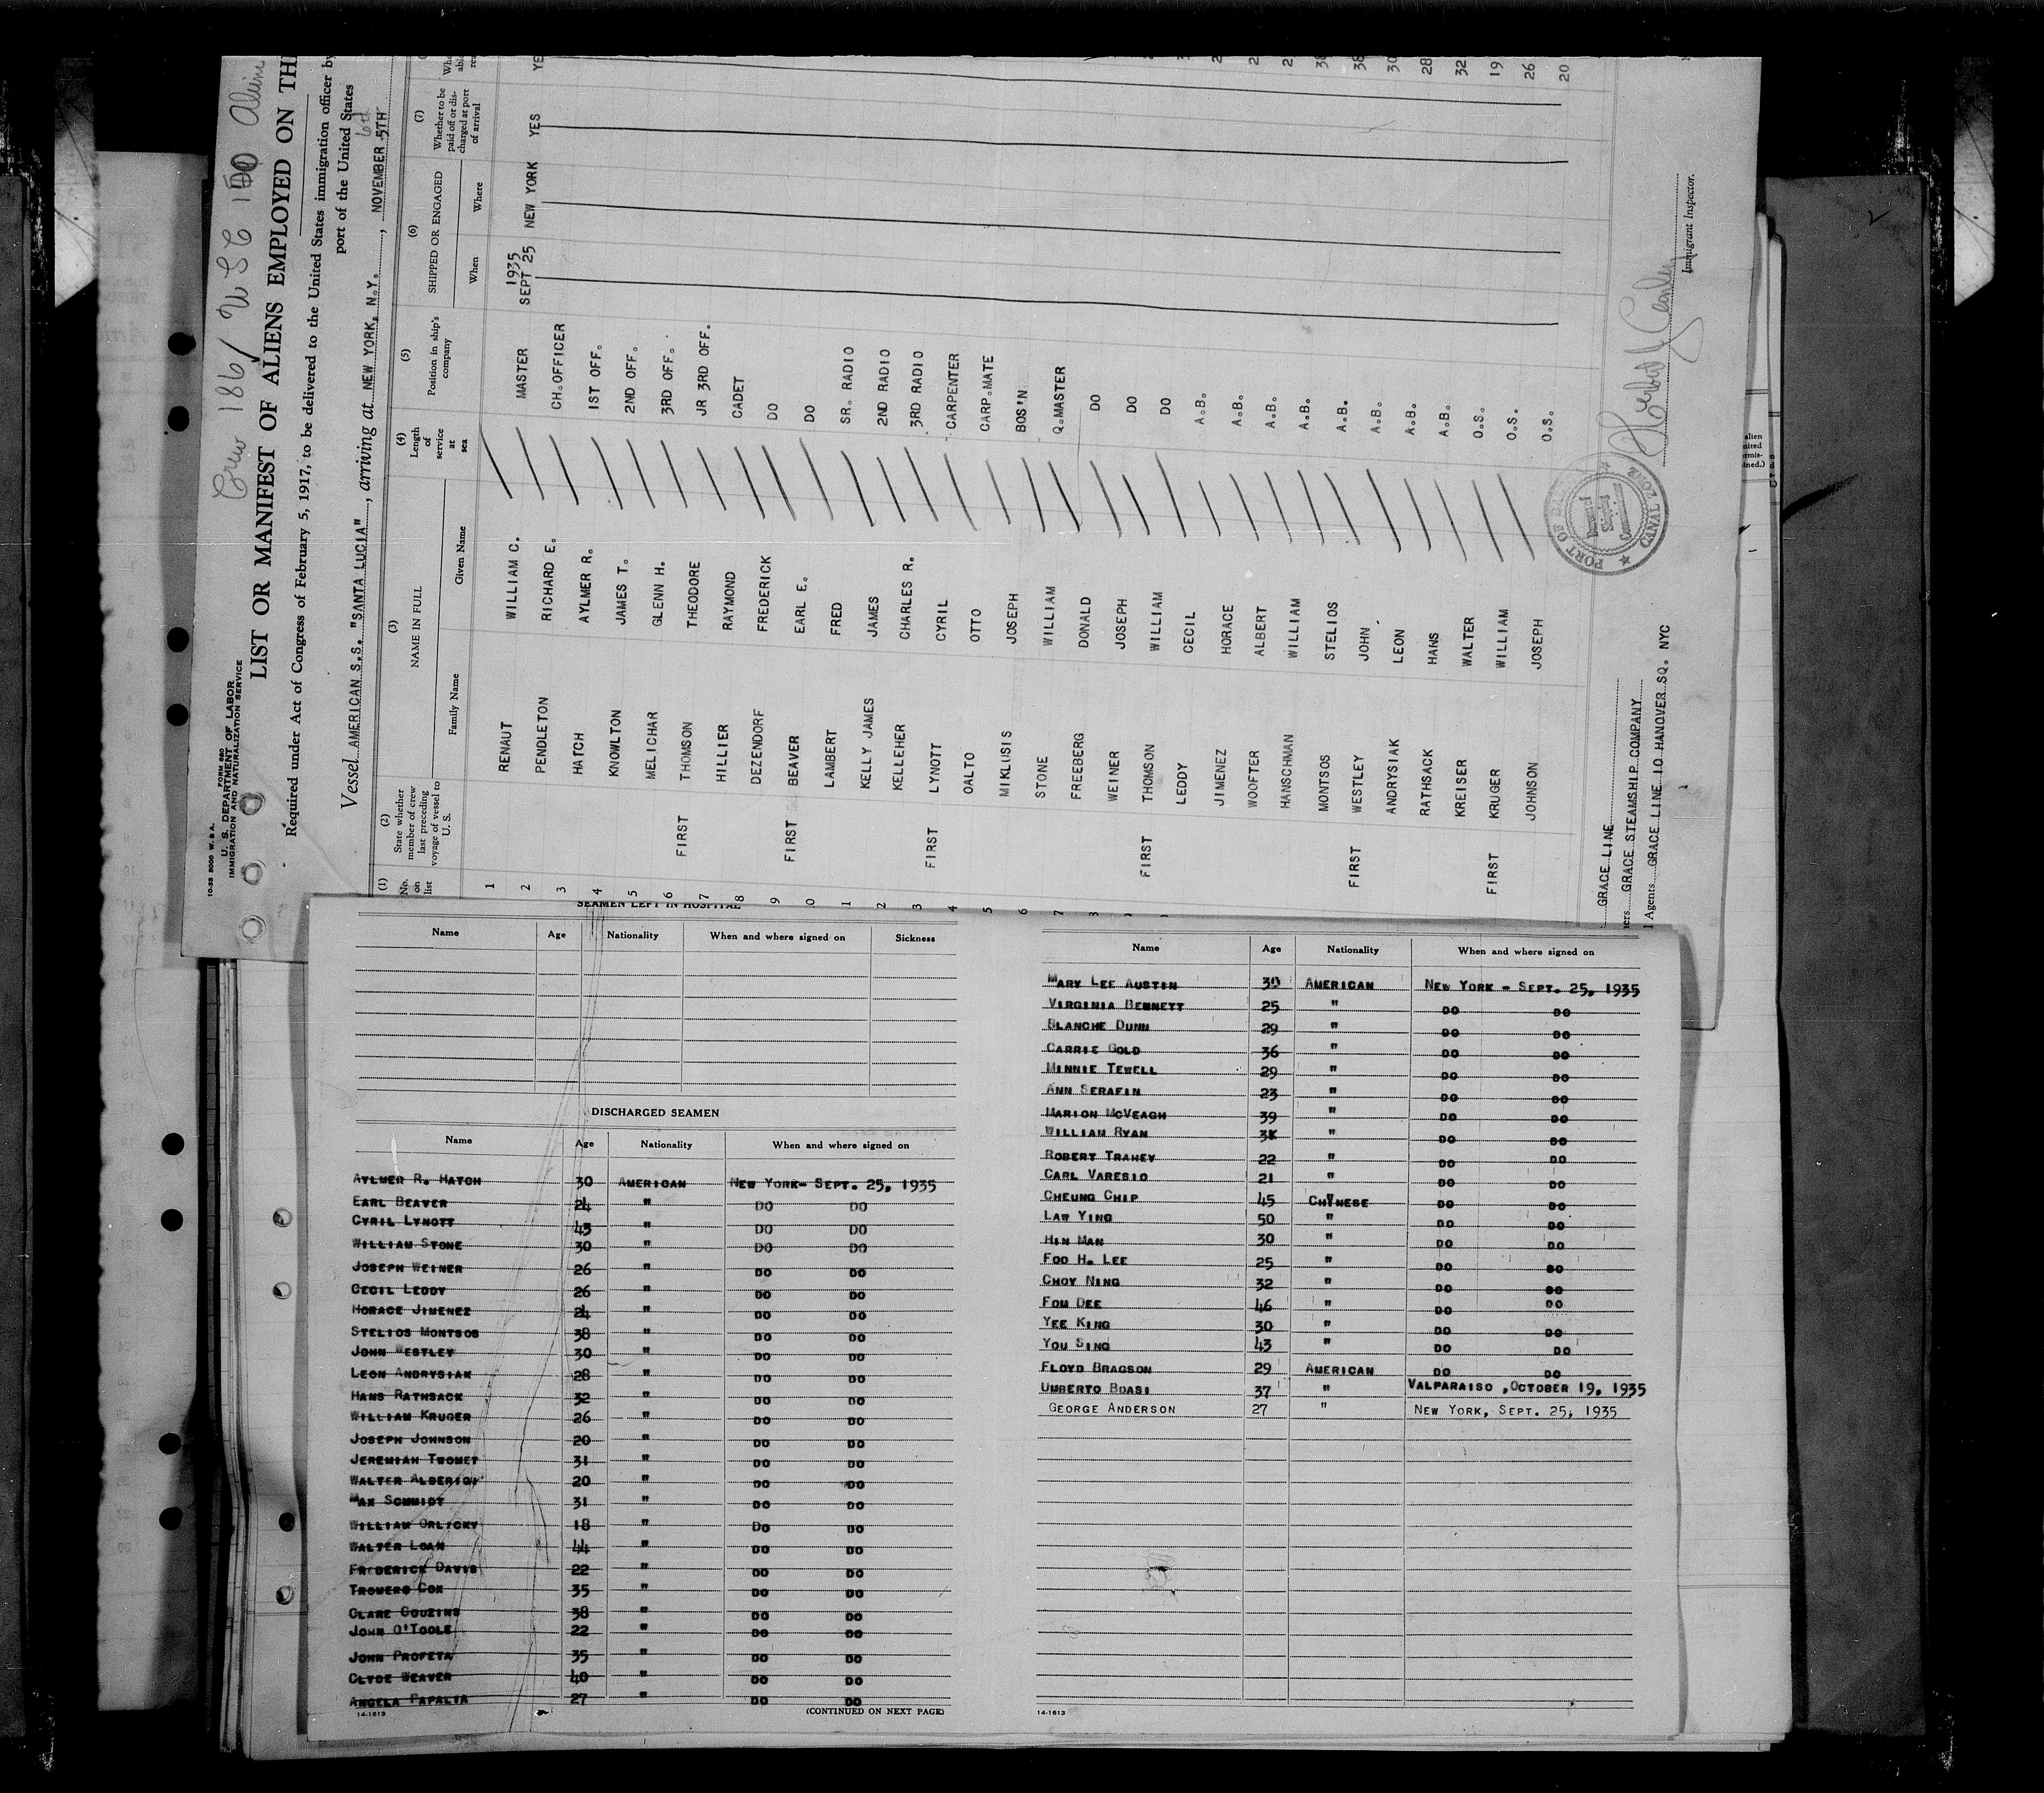 Crew 186 / USC 150 Aliens
10-33 5000 W. & A.
FORM 680
U. S. DEPARTMENT OF LABOR
IMMIGRATION AND NATURALIZATION SERVICE
LIST OR MANIFEST OF ALIENS EMPLOYED ON TH
Required under Act of Congress of February 5, 1917, to be delivered to the United States immigration officer by
port of the United States
6th
Vessel AMERICAN S.S. "SANTA LUCIA", arriving at NEW YORK, N.Y., NOVEMBER 5TH
(1) No. on list
(2) State whether member of crew last preceding voyage of vessel to U. S.
(3) NAME IN FULL Family Name Given Name
(4) Length of service at sea
(5) Position in ship's company
(6) SHIPPED OR ENGAGED When Where
(7) Whether to be paid off or discharged at port of arrival
1 RENAUT WILLIAM C. MASTER 1935 SEPT 25 NEW YORK YES YE
2 PENDLETON RICHARD E. CH.OFFICER
3 HATCH AYLMER R. 1ST OFF.
4 KNOWLTON JAMES T. 2ND OFF.
5 MELICHAR GLENN H. 3RD OFF.
6 FIRST THOMSON THEODORE JR 3RD OFF.
7 HILLIER RAYMOND CADET
8 DEZENDORF FREDERICK DO
9 FIRST BEAVER EARL E. DO
0 LAMBERT FRED SR. RADIO
1 KELLY JAMES JAMES 2ND RADIO
2 KELLEHER CHARLES R. 3RD RADIO
3 FIRST LYNOTT CYRIL CARPENTER
4 OALTO OTTO CARP.MATE
5 MIKLUSIS JOSEPH BOS'N
6 STONE WILLIAM Q.MASTER
7 FREEBERG DONALD DO
WEINER JOSEPH DO
FIRST THOMSON WILLIAM DO
LEDDY CECIL A.B.
JIMENEZ HORACE A.B.
WOOFTER ALBERT A.B.
HANSCHMAN WILLIAM A.B.
MONTSOS STELIOS A.B. 38
FIRST WESTLEY JOHN A.B. 30
ANDRYSIAK LEON A.B. 28
RATHSACK HANS A.B. 32
KREISER WALTER O.S. 19
FIRST KRUGER WILLIAM O.S. 26
JOHNSON JOSEPH O.S. 20
PORT OF
CANAL ZONE
Bureau of Shipping Commissioner
Immigrant Inspector.
GRACE LINE
ners GRACE STEAMSHIP COMPANY
Agents GRACE LINE 10 HANOVER SQ. NYC
SEAMEN LEFT IN HOSPITAL
Name Age Nationality When and where signed on Sickness
DISCHARGED SEAMEN
Name Age Nationality When and where signed on
AYLMER R. HATCH 30 AMERICAN NEW YORK- SEPT. 25, 1935
EARL BEAVER 24 " DO DO
CYRIL LYNOTT 43 " DO DO
WILLIAM STONE 30 " DO DO
JOSEPH WEINER 26 " DO DO
CECIL LEDDY 26 " DO DO
HORACE JIMENEZ 24 " DO DO
STELIOS MONTSOS 38 " DO DO
JOHN WESTLEY 30 " DO DO
LEON ANDRYSIAK 28 " DO DO
HANS RATHSACK 32 " DO DO
WILLIAM KRUGER 26 " DO DO
JOSEPH JOHNSON 20 " DO DO
JEREMIAH TWOMEY 31 " DO DO
WALTER ALBERIGI 20 " DO DO
MAX SCHMIDT 31 " DO DO
WILLIAM ORLICKY 18 " DO DO
WALTER LOAN 44 " DO DO
FREDERICK DAVIS 22 " DO DO
TROMERO COX 35 " DO DO
CLARE COUZINS 38 " DO DO
JOHN O'TOOLE 22 " DO DO
JOHN PROFETA 35 " DO DO
CLYDE WEAVER 40 " DO DO
ANGELA PAPALIA 27 " DO DO
14-1613 (CONTINUED ON NEXT PAGE)
Name Age Nationality When and where signed on
MARY LEE AUSTIN 30 AMERICAN NEW YORK - SEPT. 25, 1935
VIRGINIA BENNETT 25 " DO DO
BLANCHE DUNN 29 " DO DO
CARRIE GOLD 36 " DO DO
MINNIE TEWELL 29 " DO DO
ANN SERAFIN 23 " DO DO
MARION MCVEAGH 39 " DO DO
WILLIAM RYAN " DO DO
ROBERT TRAHEY 22 " DO DO
CARL VARESIO 21 " DO DO
CHEUNG CHIP 45 CHINESE DO DO
LAW YING 50 " DO DO
HIN MAN 30 " DO DO
FOO H. LEE 25 " DO DO
CHOY NING 32 " DO DO
FOM DEE 46 " DO DO
YEE KING 30 " DO DO
YOU SING 43 " DO DO
FLOYD BRAGSON 29 AMERICAN DO DO
UMBERTO BOASI 37 " VALPARAISO, OCTOBER 19, 1935
GEORGE ANDERSON 27 " NEW YORK, SEPT. 25, 1935
14-1613